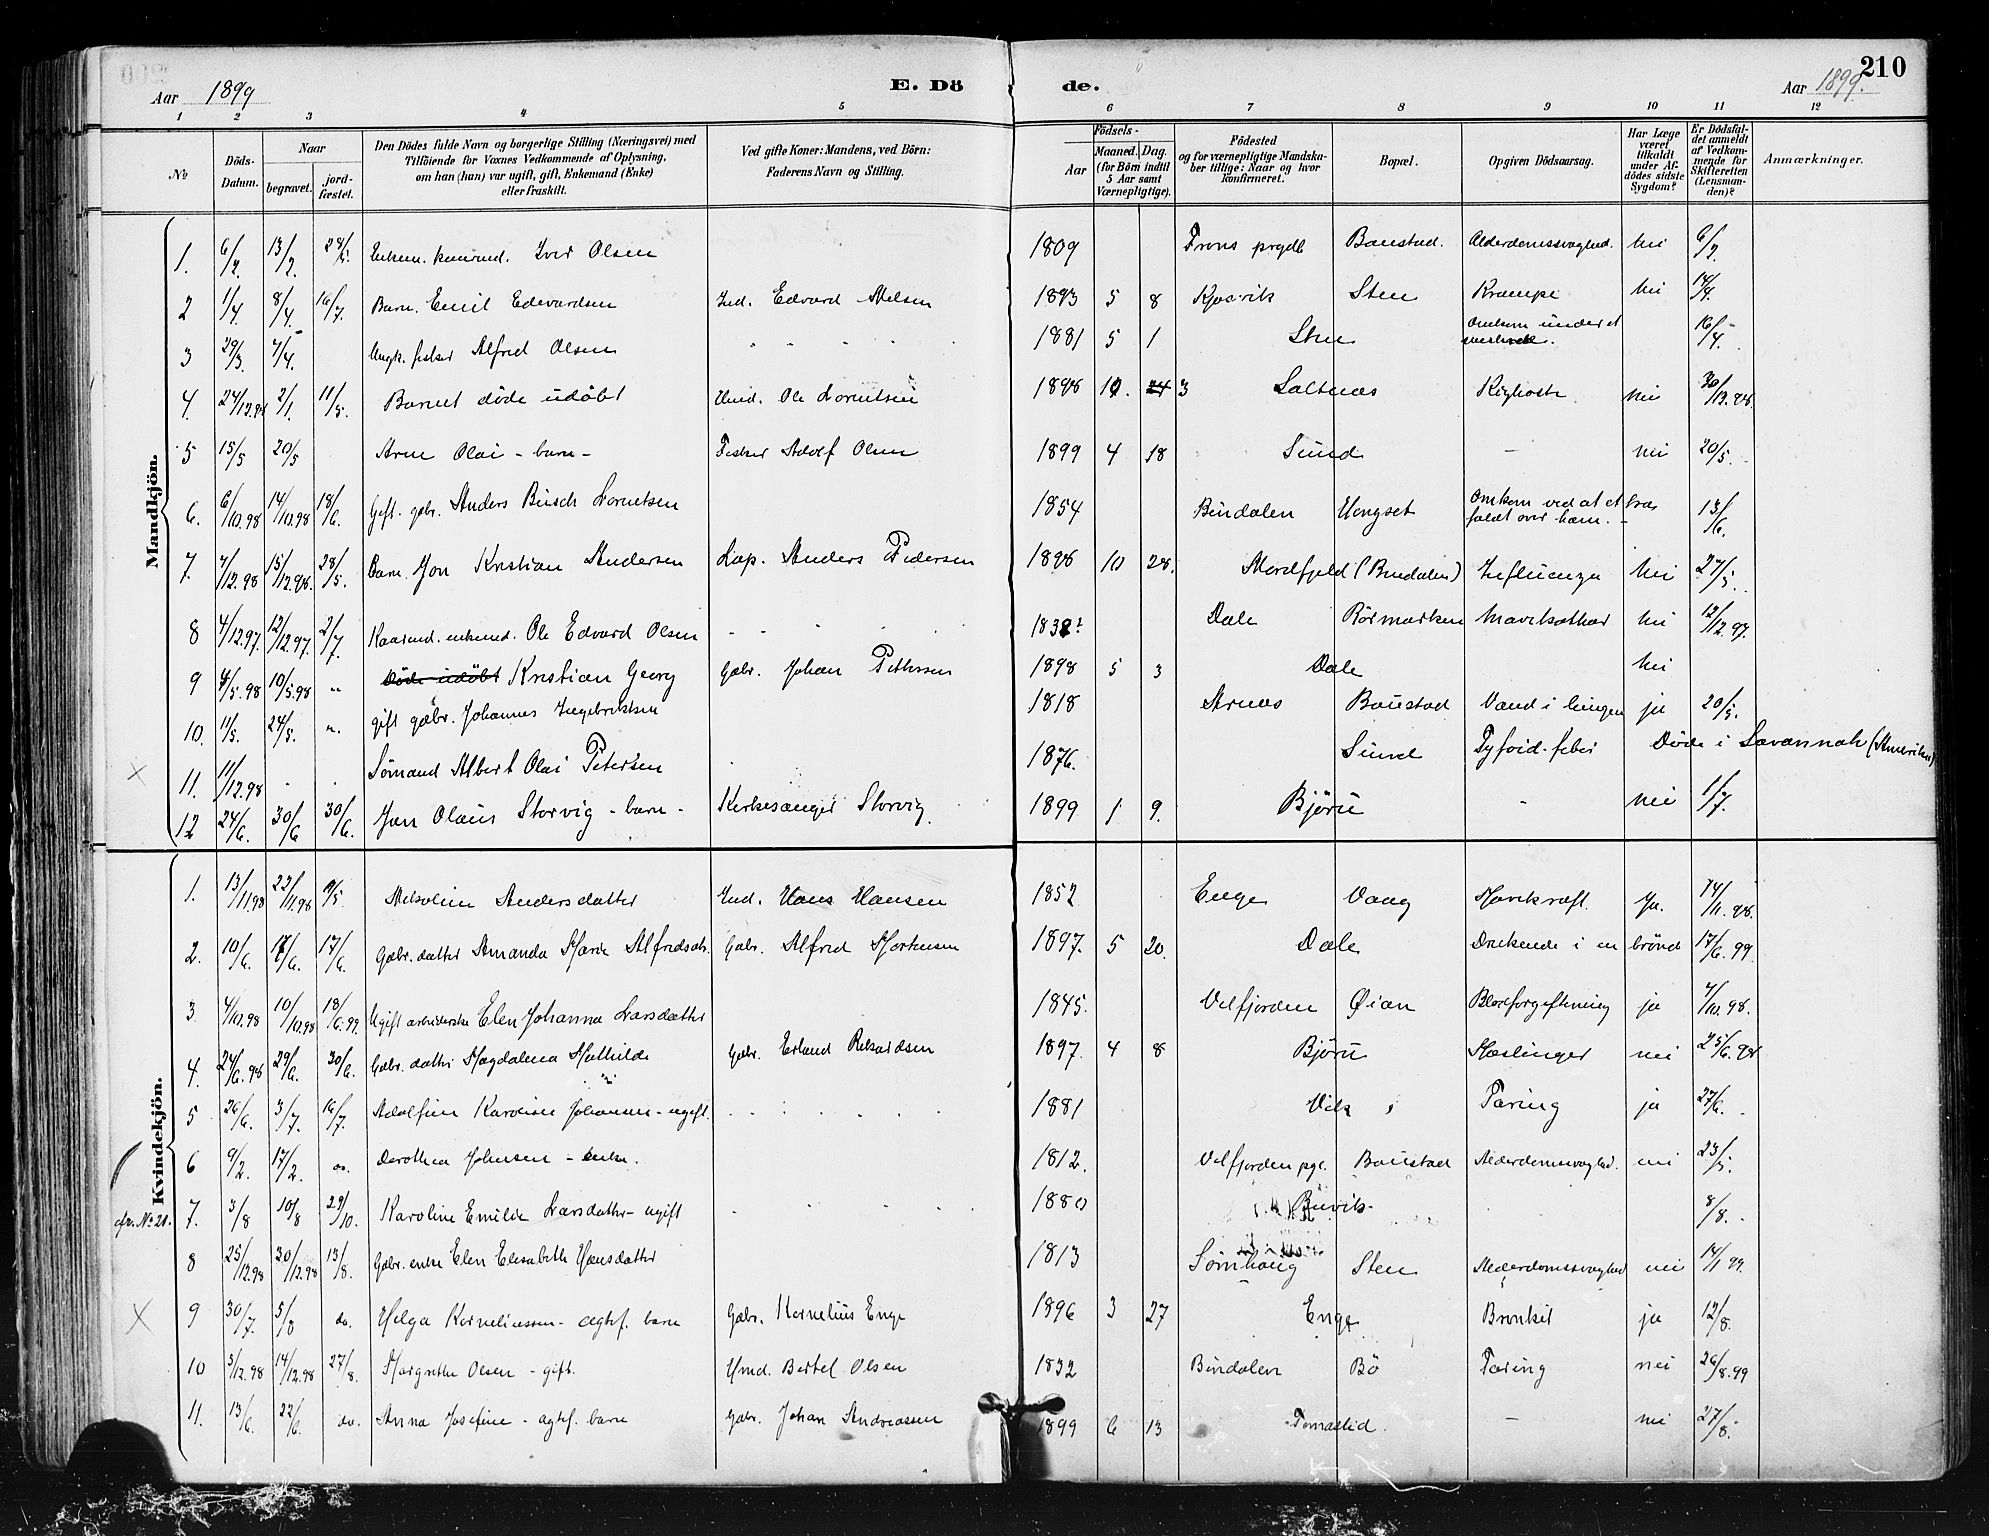 210
Aar 1899
E. Döde.
Aar 1899.
1 2 3 4 5 6 7 8 9 10 11 12
No
Döds-Datum.
Naar
begravet.
jord-fæstet.
Den Dödes fulde Navn og borgerlige Stilling (Næringsvei) med
Tilföiende for Voxnes Vedkommende af Oplysning,
om han (hun) var ugift, gift, Enkemand (Enke)
eller fraskilt.
Ved gifte Koner: Mandens, ved Börn:
Faderens Navn og Stilling.
Födsels-
Aar
Maaned. Dag.
(for Börn indtil
5 Aar samt
Værnepligtige).
Födested
og for værnepligtige Mandska-
ber tillige: Naar og hvor
konfirmeret.
Bopæl.
Opgiven Dödsaarsag.
Har Læge
været
tilkaldt
under Af-
dödes sidste
Sygdom?
Er Dödsfal-
det anmeldt
af Vedkom-
mende for
Skifteretten
(Lensman-
den)?
Anmærkninger.
Mandkjön.
1. 6/2 13/2 Iver Olsen 1809 Trons prgdl Baustad. Alderdomssvaghed. Nei 6/2
2 1/4 8/4 16/7. Barn. Emil Edvardsen Ind. Edvard Nilsen 1893 5 8 Kjosvik Sten Krampe Nei 14/4.
3 29/3. 4/4. Ungk. fisker Alfred Olsen 1881 5 1 Sten Omkom under et 16/4.
4. 24/12.98 2/1. 11/5. Barnet døde udøbt Ind. Ole Lorentsen 1898 10. 24 3 Saltnæs Kighoste nei 30/12.98.
5 15/5 20/5 Arne Olai - barn - Fisker Adolf Olsen 1899 4 18 Sund - nei 20/5.
6. 6/10.98 14/10.98 18/6. Gift. gbr. Anders Busch Lorentsen 1854 Bindalen Hongset Omkom ved at et træ
faldt over ham. - 13/6.
7. 7/12.98 15/12.98. 28/5. Barn. Jon Kristian Andersen Lap. Anders Pedersen 1898 10 28. Nordfjeld (Bindalen) Influenza Nei 27/5.
8 4/12.97 12/12.97. 2/7. Kaarmd. enkemd. Ole Edvard Olsen 1832? Dale Rørmarken Mavekatar Nei 12/12.97.
9 4/5.98 10/5.98 " Døde udøbt Kristian Georg Gbr. Johan Pettersen 1898 5 3 Dale Nei
10. 11/5. 24/5. ". gift gbr. Johannes Ingebriktsen 1818 Arnæs Baustad Vand i lungen ja 20/5.
11. 11/12.98 Sømand Albert Olai Petersen 1876. Sund Tyfoid-feber Døde i Savannah (Amerika)
12 24/6. 30/6 30/6. Jon Olaus Storvig - barn - Kirkesanger Storvig. 1899 1 9. Bjørn - nei 1/7.
Kvindekjön.
1. 13/11.98 22/11.98 Andersdatter Ind. Hans Hansen 1852 Enge Vaag Mavekræft. Ja. 14/11.98.
2. 10/6. 17/6. 17/6. Gbr. datter Amanda Marie Alfredsdtr. Gbr. Alfred Mortensen 1897. 5 20. Dale Druknede i en brønd 17/6.99.
3 4/10.98 10/10.98 18/6.99. Ugift arbeiderske Elen Johanna Larsdatter 1845. Velfjorden Øian Blodforgiftning ja 7/10.98.
4. 24/6.98 29/6. 30/6. Gbr. datter Magdalena Mathilde Gbr. Erland Rikardsen 1897. 4 8 Bjørn Mæslinger nei 25/6.98
5 26/6. 3/7. 16/7. Adolfine Karoline Johansen - ugift. 1881 Vik Tæring ja 27/6.
6 9/2. 17/2. do. Dorothea Johnsen - enke. 1812. Velfjorden pgl. Baustad Alderdomssvaghed. nei 23/5.
cfr. No 21. 7. 3/8 10/8 29/10. Karoline Emilie Larsdatter - ugift 1880 8/8.
8 25/12.98 30/12.98 13/8. Gbr. enke Elen Elisabeth Hansdatter 1813 Sømhaug Sten Alderdomssvaghed nei 14/1 99.
9 30/7. 5/8 do. Helga Korneliussen - ægtef. barn Gbr. Kornelius Enge 1896 3 27 Enge Bronkit ja 12/8.
10 5/12.98 14/12.98 27/8. Margrethe Olsen - gift. Hmd. Bertel Olsen 1832 Bindalen Bö Tæring nei 26/8.99
11. 13/6. 22/6. do. Anna Josefine - ægtef. barn Gbr. Johan Andreassen 1899 6 13 Tomaslid. - nei 27/8.